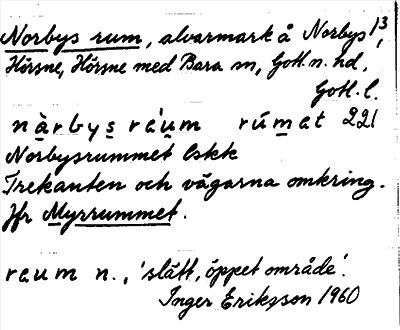 Norbys rum, alvarmark å Norbys 1³,
Hörsne, Hörsne med Bara sn, Gotl. n. hd,
Gotl. l.
nàrbys ráum rúmat 221
Norbysrummet Eskk
Trekanten och vägarna omkring.
Jfr Myrrummet.
raum n., 'slätt, öppet område'.
Inger Eriksson 1960